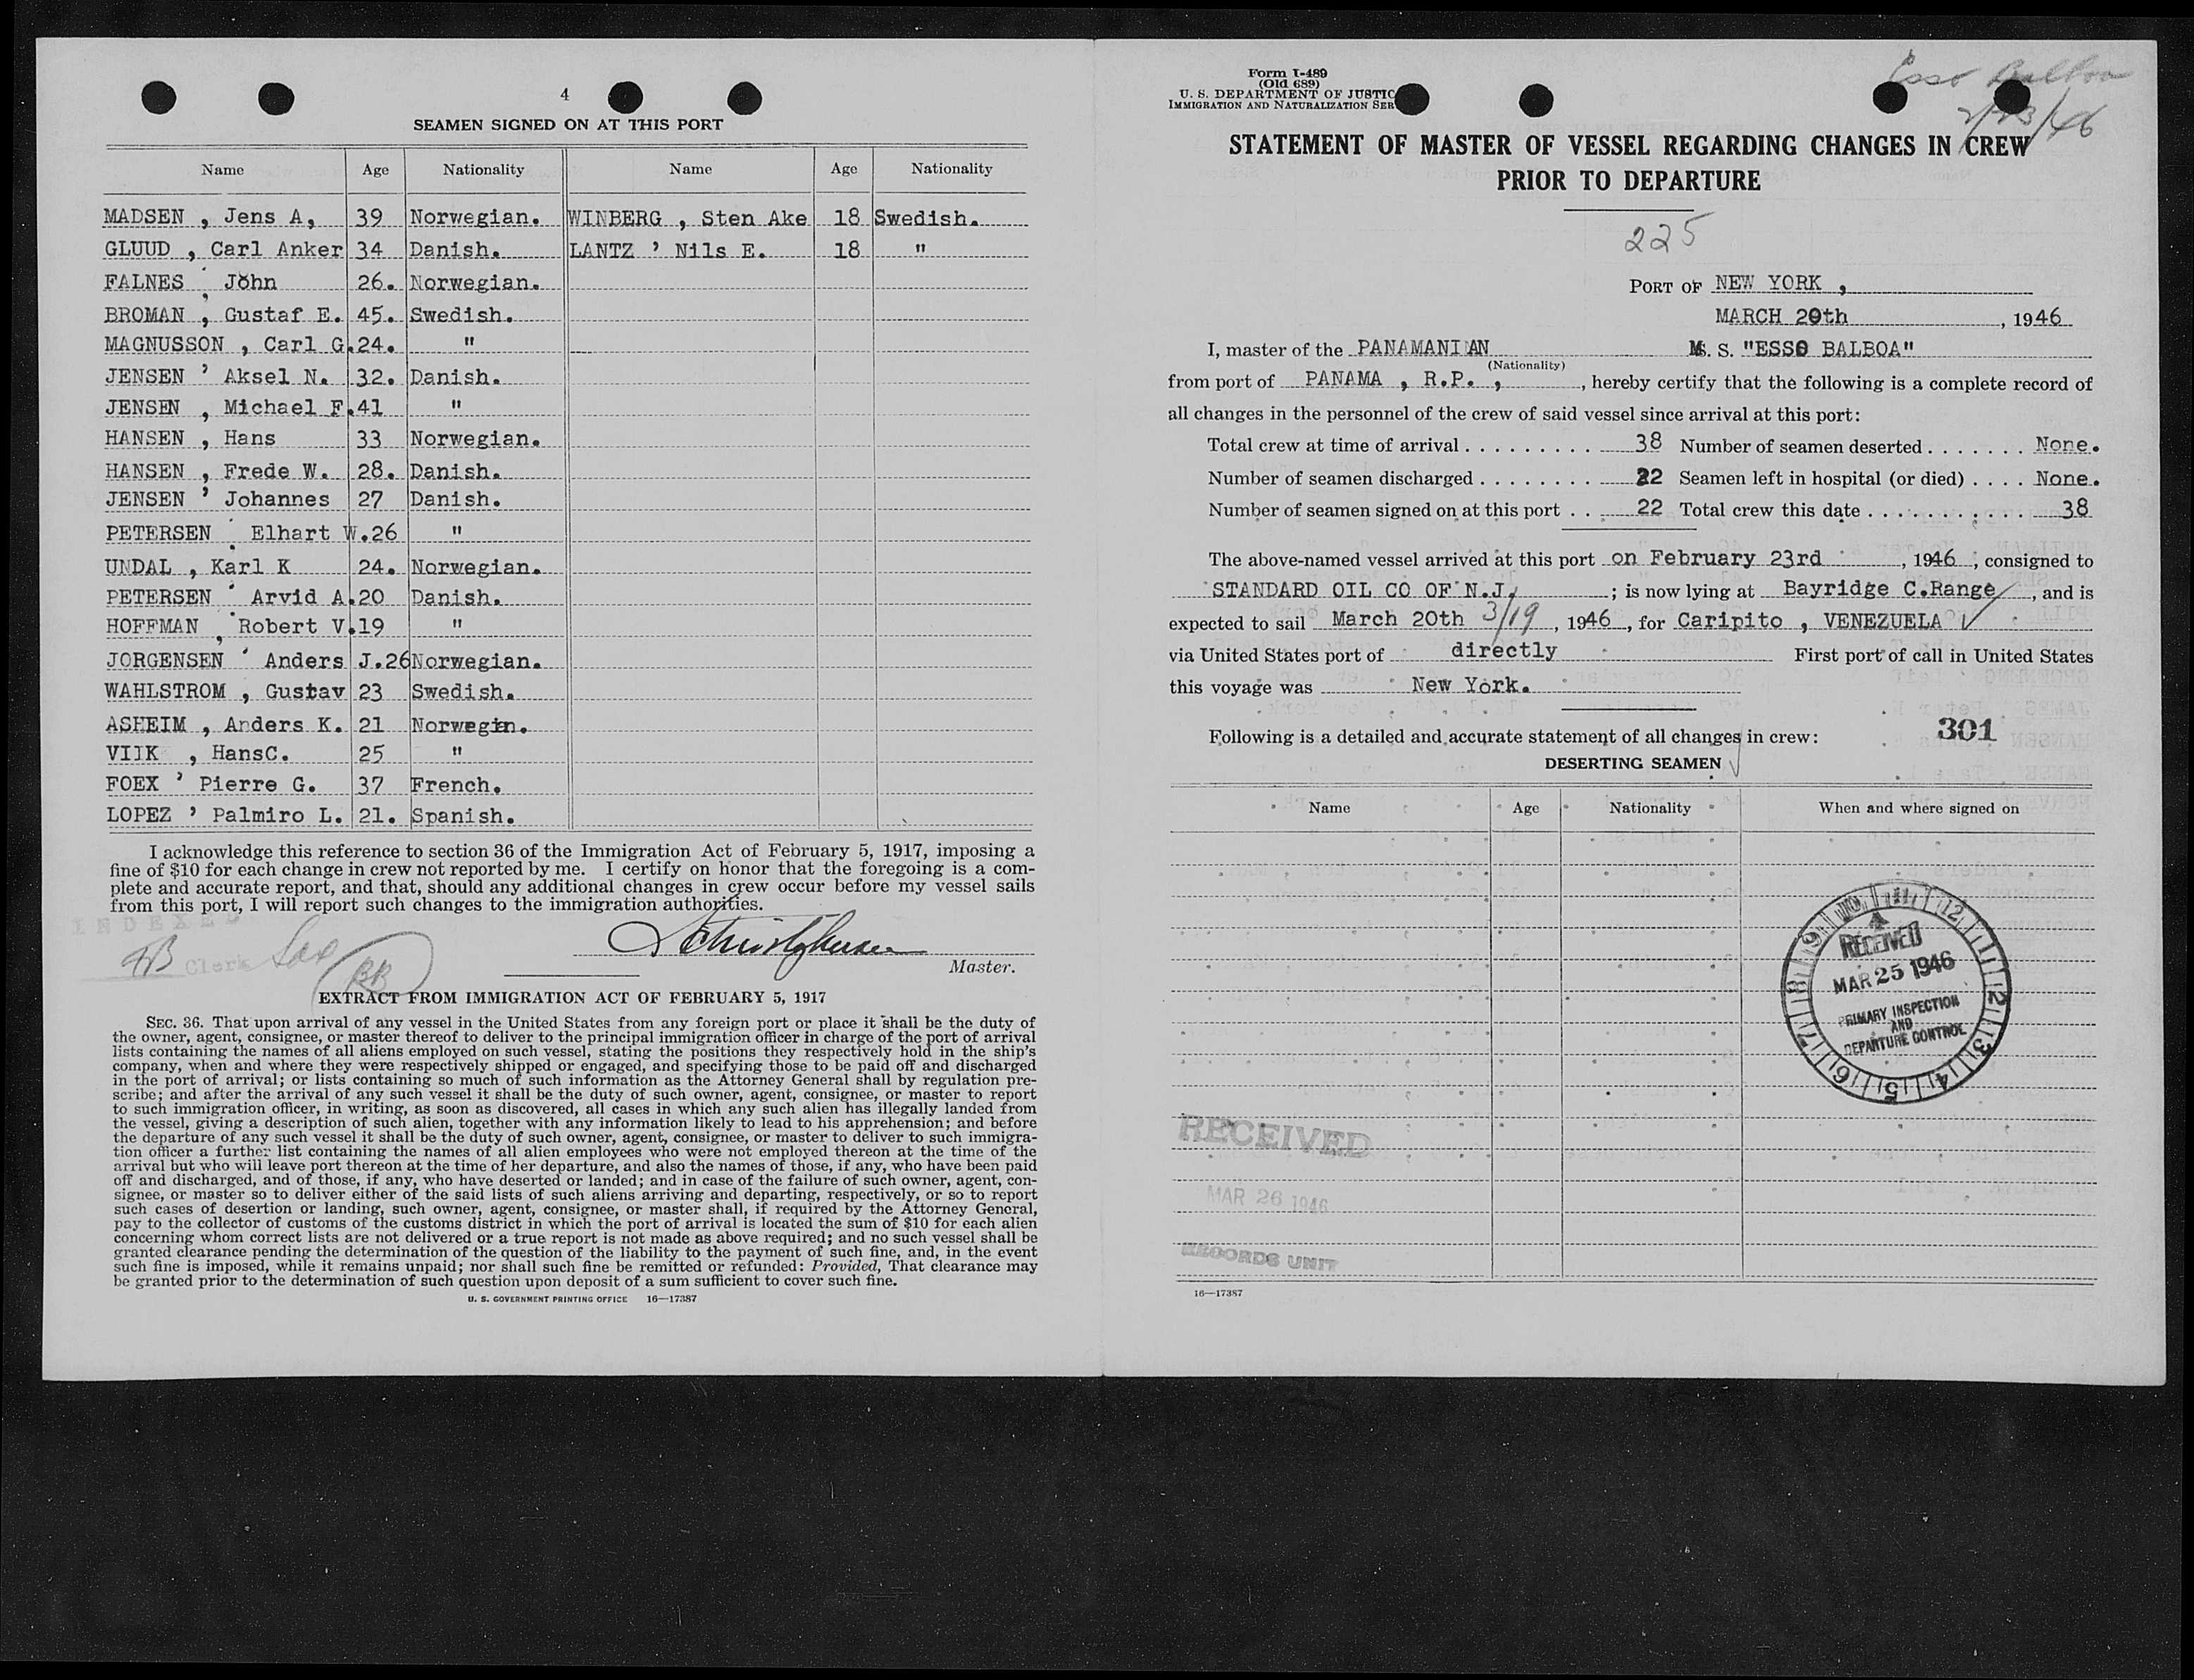 4
SEAMEN SIGNED ON AT THIS PORT
Name Age Nationality Name Age Nationality
MADSEN , Jens A, 39 Norwegian. WINBERG , Sten Ake 18 Swedish.
GLUUD , Carl Anker 34 Danish. LANTZ ' Nils E. 18 "
FALNES , John 26. Norwegian.
BROMAN , Gustaf E. 45. Swedish.
MAGNUSSON , Carl G. 24. "
JENSEN ' Aksel N. 32. Danish.
JENSEN , Michael F. 41 "
HANSEN , Hans 33 Norwegian.
HANSEN , Frede W. 28. Danish.
JENSEN ' Johannes 27 Danish.
PETERSEN . Elhart W. 26 "
UNDAL , Karl K 24. Norwegian.
PETERSEN ' Arvid A. 20 Danish.
HOFFMAN , Robert V. 19 "
JORGENSEN ' Anders J. 26 Norwegian.
WAHLSTROM , Gustav 23 Swedish.
ASHEIM , Anders K. 21 Norwegin.
VIIK , HansC. 25 "
FOEX ' Pierre G. 37 French.
LOPEZ ' Palmiro L. 21. Spanish.
I acknowledge this reference to section 36 of the Immigration Act of February 5, 1917, imposing a
fine of $10 for each change in crew not reported by me. I certify on honor that the foregoing is a com-
plete and accurate report, and that, should any additional changes in crew occur before my vessel sails
from this port, I will report such changes to the immigration authorities.
INDEXED
Clerk
BB
Master.
EXTRACT FROM IMMIGRATION ACT OF FEBRUARY 5, 1917
SEC. 36. That upon arrival of any vessel in the United States from any foreign port or place it shall be the duty of
the owner, agent, consignee, or master thereof to deliver to the principal immigration officer in charge of the port of arrival
lists containing the names of all aliens employed on such vessel, stating the positions they respectively hold in the ship's
company, when and where they were respectively shipped or engaged, and specifying those to be paid off and discharged
in the port of arrival; or lists containing so much of such information as the Attorney General shall by regulation pre-
scribe; and after the arrival of any such vessel it shall be the duty of such owner, agent, consignee, or master to report
to such immigration officer, in writing, as soon as discovered, all cases in which any such alien has illegally landed from
the vessel, giving a description of such alien, together with any information likely to lead to his apprehension; and before
the departure of any such vessel it shall be the duty of such owner, agent, consignee, or master to deliver to such immigra-
tion officer a further list containing the names of all alien employees who were not employed thereon at the time of the
arrival but who will leave port thereon at the time of her departure, and also the names of those, if any, who have been paid
off and discharged, and of those, if any, who have deserted or landed; and in case of the failure of such owner, agent, con-
signee, or master so to deliver either of the said lists of such aliens arriving and departing, respectively, or so to report
such cases of desertion or landing, such owner, agent, consignee, or master shall, if required by the Attorney General,
pay to the collector of customs of the customs district in which the port of arrival is located the sum of $10 for each alien
concerning whom correct lists are not delivered or a true report is not made as above required; and no such vessel shall be
granted clearance pending the determination of the question of the liability to the payment of such fine, and, in the event
such fine is imposed, while it remains unpaid; nor shall such fine be remitted or refunded: Provided, That clearance may
be granted prior to the determination of such question upon deposit of a sum sufficient to cover such fine.
U. S. GOVERNMENT PRINTING OFFICE 16—17387
Form I-489
(Old 689)
U. S. DEPARTMENT OF JUSTIC
IMMIGRATION AND NATURALIZATION SER
Esso Balboa
2/23/46
STATEMENT OF MASTER OF VESSEL REGARDING CHANGES IN CREW
PRIOR TO DEPARTURE
225
PORT OF NEW YORK ,
MARCH 20th , 1946
I, master of the PANAMANIAN M. S. "ESSO BALBOA"
(Nationality)
from port of PANAMA , R.P. , , hereby certify that the following is a complete record of
all changes in the personnel of the crew of said vessel since arrival at this port:
Total crew at time of arrival . . . . . . . . . 38 Number of seamen deserted . . . . . . . None.
Number of seamen discharged . . . . . . . . 22 Seamen left in hospital (or died) . . . . None.
Number of seamen signed on at this port . . 22 Total crew this date . . . . . . . . . . . 38
The above-named vessel arrived at this port on February 23rd , 1946 , consigned to
STANDARD OIL CO OF N.J, ; is now lying at Bayridge C.Range , and is
expected to sail March 20th 3/19 , 1946 , for Caripito , VENEZUELA
via United States port of directly First port of call in United States
this voyage was New York.
301
Following is a detailed and accurate statement of all changes in crew:
DESERTING SEAMEN
Name Age Nationality When and where signed on
RECEIVED
MAR 25 1946
PRIMARY INSPECTION
AND
DEPARTURE CONTROL
10 11 12 1 2 3 4 5 6 7 8 9
RECEIVED
MAR 26 1946
RECORDS UNIT
16—17387